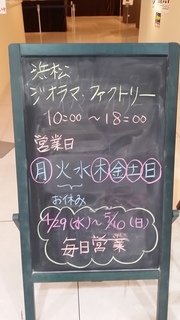 浜松
ジオラマ・ファクトリー
10:00～18:00
営業日
月火水木金土日
お休み
4/29(水)～5/10(日)
毎日営業